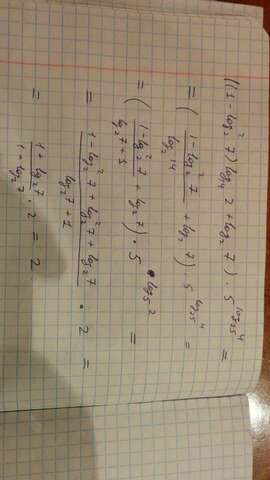 ((1 - log₂² 7) log₁₄ 2 + log₂ 7) · 5^(log₂₅ 4) =
= ( (1 - log₂² 7) / (log₂ 14) + log₂ 7 ) 5^(log₂₅ 4) =
= ( (1 - log₂² 7) / (log₂ 7 + 1) + log₂ 7 ) · 5^(log₅ 2) =
= (1 - log₂² 7 + log₂² 7 + log₂ 7) / (log₂ 7 + 1) · 2 =
= (1 + log₂ 7) / (1 + log₂ 7) · 2 = 2